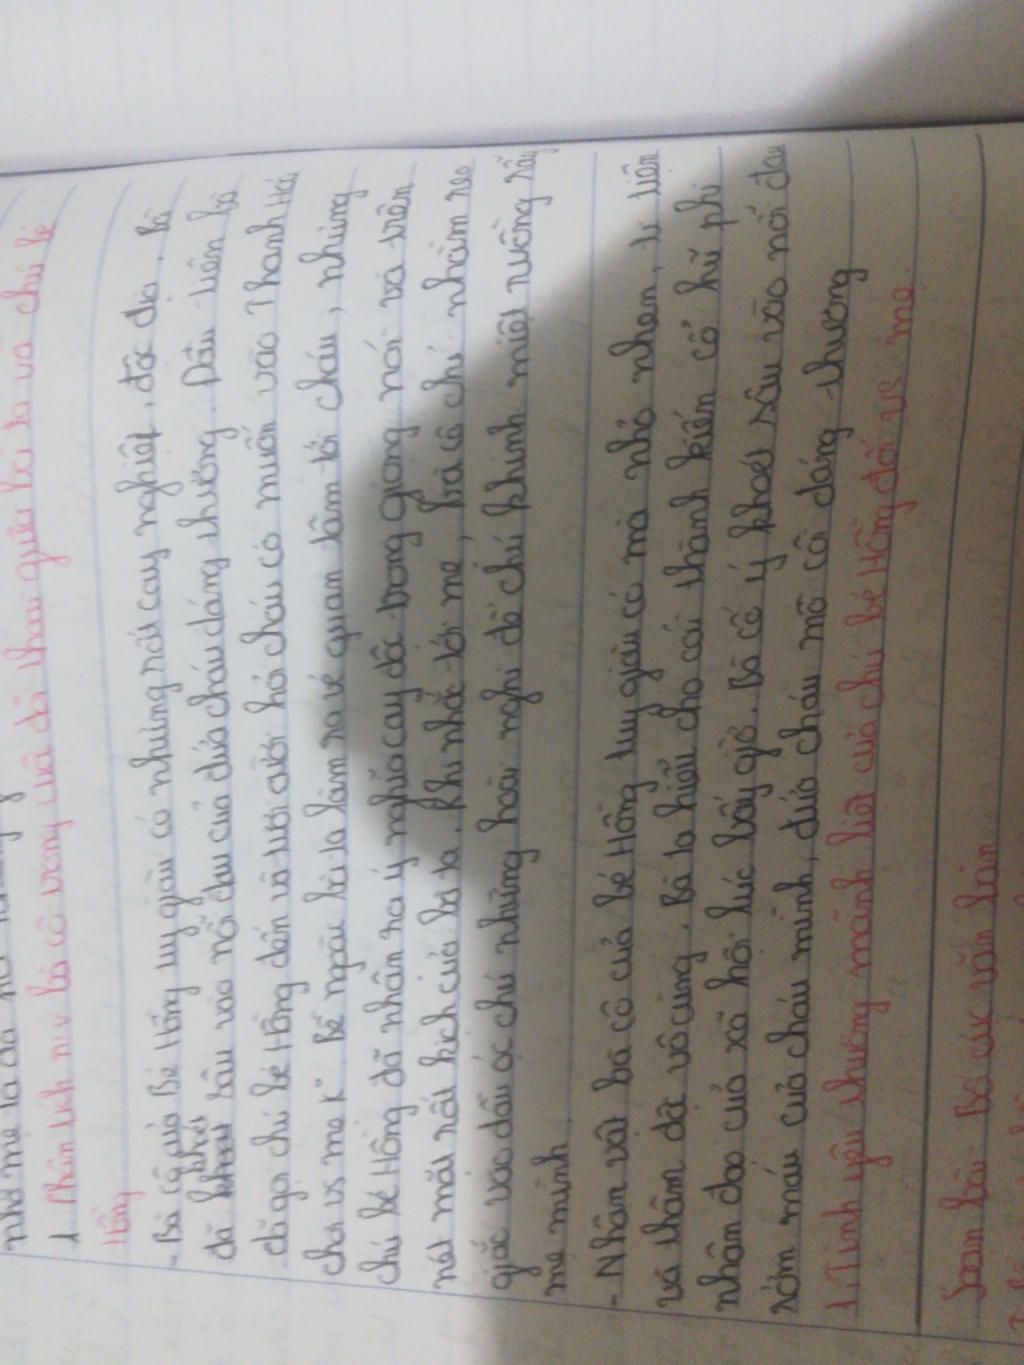 1. Phân tích nv bà cô trong cuộc đối thoại giữa bà ta và chú bé
Hồng
- Bà cô của Bé Hồng tuy giàu có nhưng rất cay nghiệt, độc địa. Bà
đã khoét sâu vào nỗi đau của đứa cháu đáng thương. Đầu tiên bà
đã gọi chú bé Hồng đến và tươi cười hỏi cháu có muốn vào Thanh Hoá
chơi vs mẹ k". Bề ngoài bà ta làm ra vẻ quan tâm tới cháu, nhưng
chú bé Hồng đã nhận ra ý nghĩa cay độc trong giọng nói và trên
nét mặt rất kịch của bà ta. Khi nhắc tới mẹ, bà cô chỉ nhằm reo
giắc vào đầu óc chú những hoài nghi để chú khinh miệt ruồng rẫy
mẹ mình
- Nhân vật bà cô của bé Hồng tuy giàu có mà nhỏ nhen, ti tiện
và thâm độc vô cùng. Bà ta hiểu cho cái thành kiến cổ hủ phi
nhân đạo của xã hội lúc bấy giờ. Bà cố ý khoét sâu vào nỗi đau
rớm máu của cháu mình, đứa cháu mồ côi đáng thương
1. Tình yêu thương mãnh liệt của chú bé Hồng đối vs mẹ.
Soạn bài: Bố cục văn bản